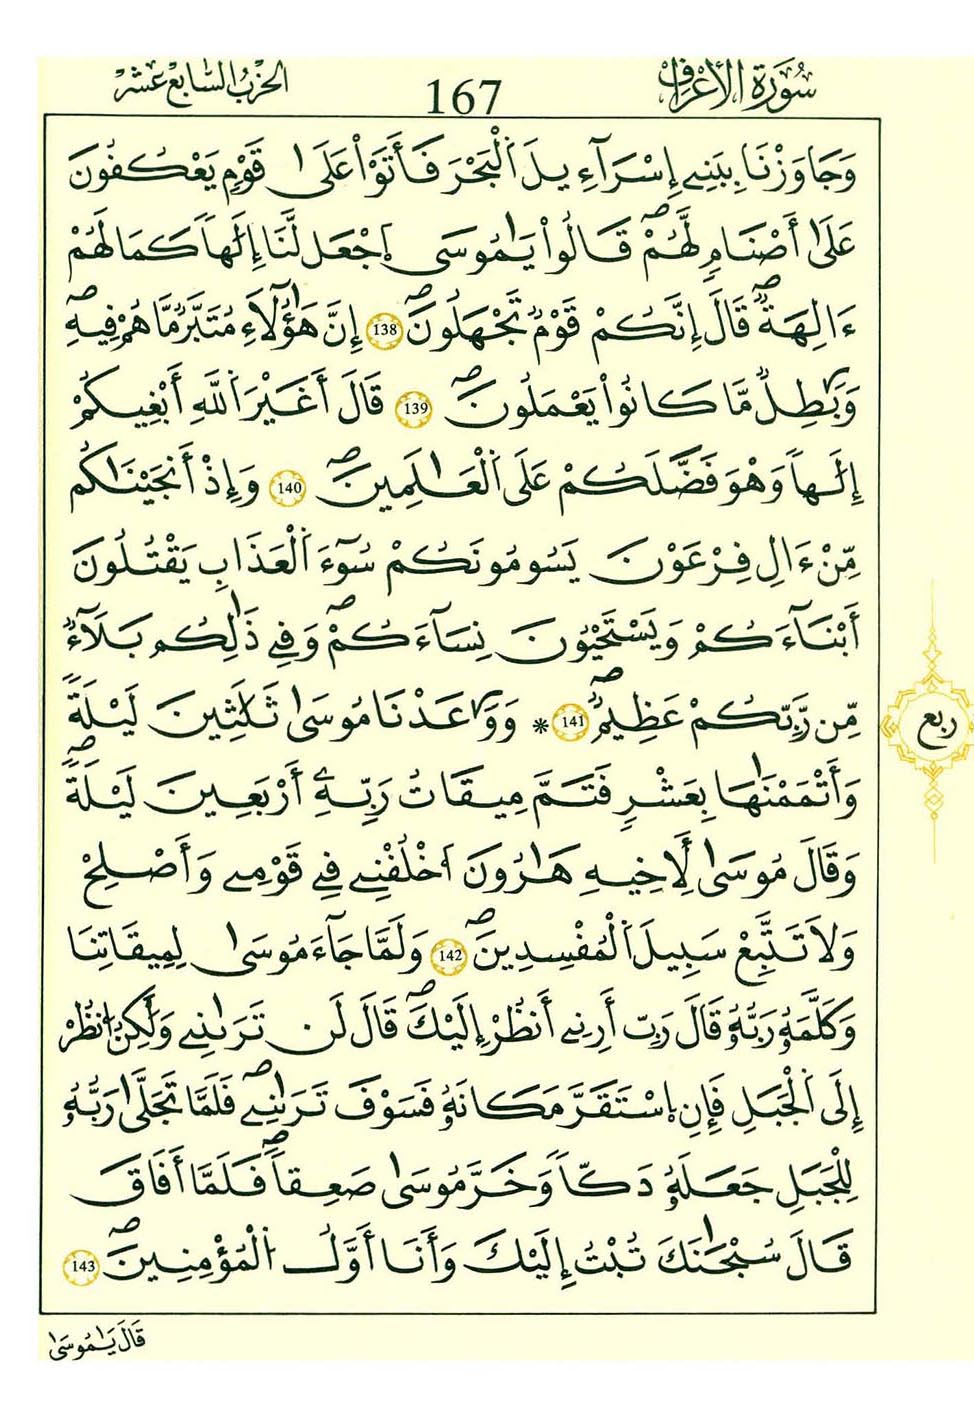 سُورَةُ الْأَعْرَافِ 167 الحِزْبُ السَّابِع عَشَر
وَجَاوَزْنَا بِبَنِے إِسْرَآءِيلَ اَ۬لْبَحْرَ فَأَتَوْاْ عَلَىٰ قَوْمٖ يَعْكُفُونَ
عَلَىٰٓ أَصْنَامٖ لَّهُمْۖ قَالُواْ يَٰمُوسَى اَ۪جْعَل لَّنَآ إِلَٰهاٗ كَمَا لَهُمُۥٓ
ءَالِهَةٞۖ قَالَ إِنَّكُمْ قَوْمٞ تَجْهَلُونَۖ 138 إِنَّ هَٰٓؤُلَآءِ مُتَبَّرٞ مَّا هُمْ فِيهِۖ
وَبَٰطِلٞ مَّا كَانُواْ يَعْمَلُونَۖ 139 قَالَ أَغَيْرَ اَ۬للَّهِ أَبْغِيكُمُۥٓ
إِلَٰهاٗ وَهْوَ فَضَّلَكُمْ عَلَى اَ۬لْعَٰلَمِينَۖ 140 وَإِذْ أَنجَيْنَٰكُم
مِّنْ ءَالِ فِرْعَوْنَ يَسُومُونَكُمْ سُوٓءَ اَ۬لْعَذَابِ يَقْتُلُونَ
أَبْنَآءَكُمْ وَيَسْتَحْيُونَ نِسَآءَكُمْۖ وَفِے ذَٰلِكُم بَلَآءٞ
مِّن رَّبِّكُمْ عَظِيمٞۖ 141 * وَوَٰعَدْنَا مُوسَىٰ ثَلَٰثِينَ لَيْلَةٗ
وَأَتْمَمْنَٰهَا بِعَشْرٖ فَتَمَّ مِيقَٰتُ رَبِّهِۦٓ أَرْبَعِينَ لَيْلَةٗۖ
وَقَالَ مُوسَىٰ لِأَخِيهِ هَٰرُونَ اَ۟خْلُفْنِے فِے قَوْمِے وَأَصْلِحْ
وَلَا تَتَّبِعْ سَبِيلَ اَ۬لْمُفْسِدِينَۖ 142 وَلَمَّا جَآءَ مُوسَىٰ لِمِيقَٰتِنَا
وَكَلَّمَهُۥ رَبُّهُۥ قَالَ رَبِّ أَرِنِےٓ أَنظُرْ إِلَيْكَۖ قَالَ لَن تَرَىٰنِے وَلَٰكِنُ اُ۟نظُرْ
إِلَى اَ۬لْجَبَلِ فَإِنِ اِ۪سْتَقَرَّ مَكَانَهُۥ فَسَوْفَ تَرَىٰنِےۖ فَلَمَّا تَجَلَّىٰ رَبُّهُۥ
لِلْجَبَلِ جَعَلَهُۥ دَكّاٗ وَخَرَّ مُوسَىٰ صَعِقاٗۖ فَلَمَّآ أَفَاقَ
قَالَ سُبْحَٰنَكَ تُبْتُ إِلَيْكَ وَأَنَآ أَوَّلُ اُ۬لْمُؤْمِنِينَۖ 143
ربع
قَالَ يَٰمُوسَىٰ